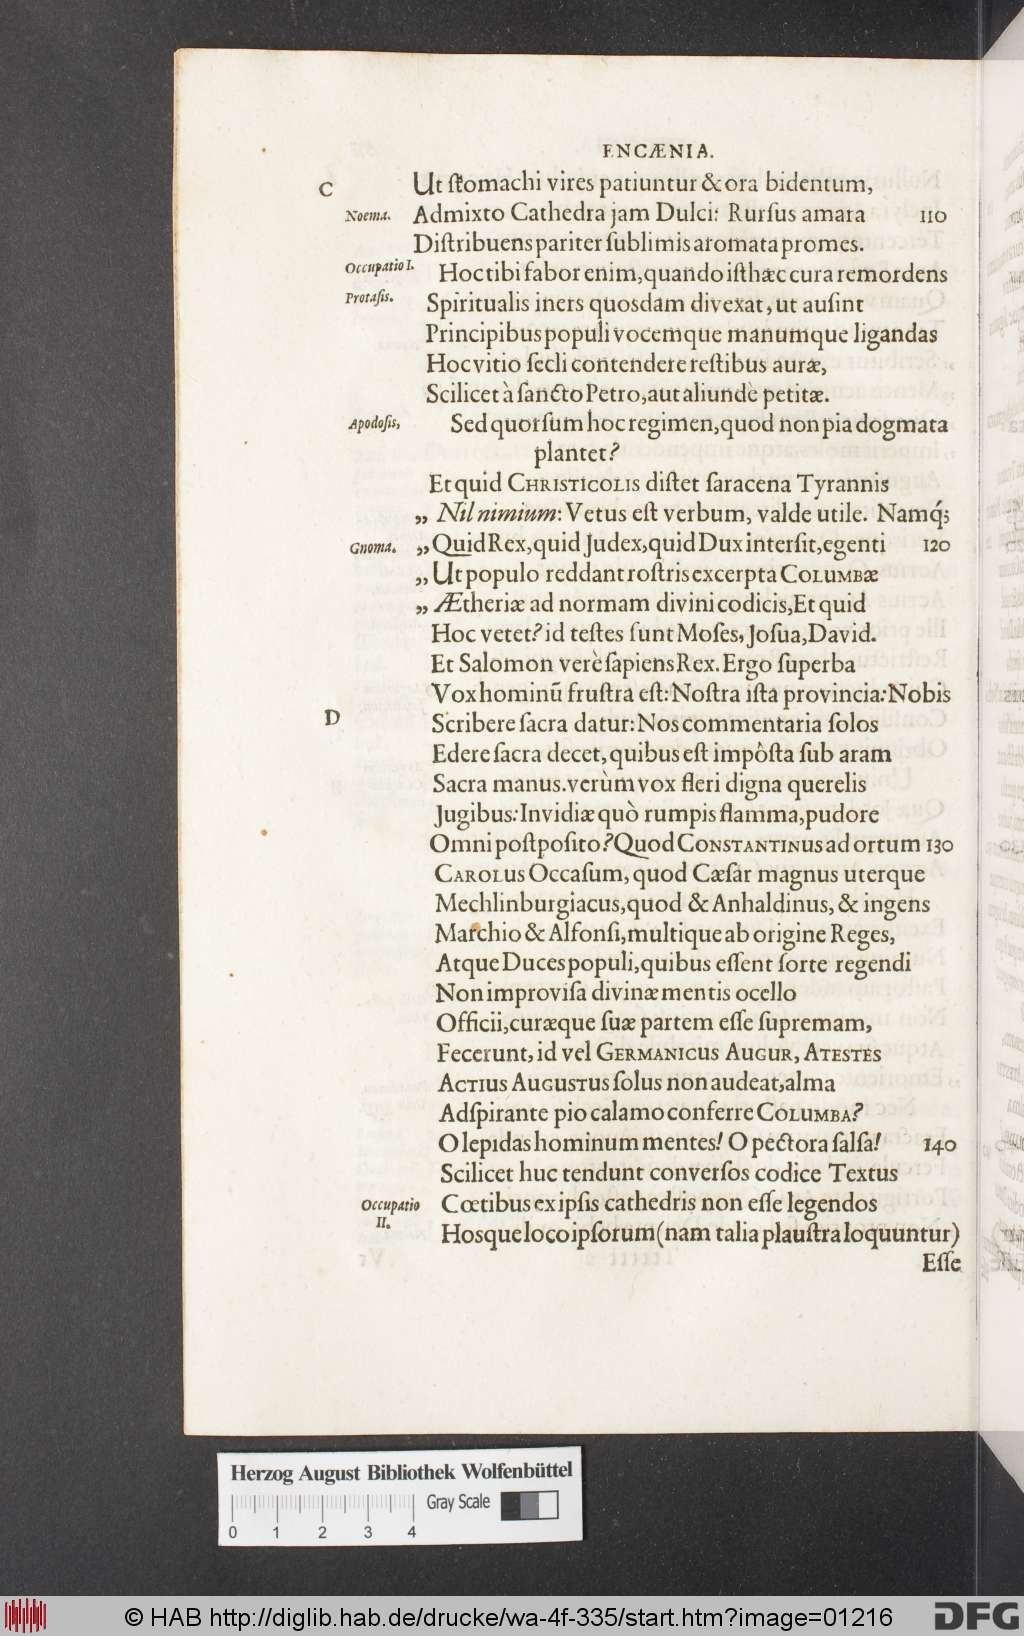 ENCÆNIA.
C
Ut ſtomachi vires patiuntur & ora bidentum,
Noema. Admixto Cathedra jam Dulci: Rurſus amara 110
Diſtribuens pariter ſublimis aromata promes.
Occupatio I. Hoc tibi fabor enim, quando iſthæc cura remordens
Protaſis. Spiritualis iners quosdam divexat, ut auſint
Principibus populi vocemque manumque ligandas
Hoc vitio ſecli contendere reſtibus auræ,
Scilicet à ſancto Petro, aut aliundè petitæ.
Apodoſis, Sed quorſum hoc regimen, quod non pia dogmata
plantet?
Et quid CHRISTICOLIS diſtet ſaracena Tyrannis
„ Nil nimium: Vetus eſt verbum, valde utile. Namq́;
Gnoma. „ Quid Rex, quid Judex, quid Dux interſit, egenti 120
„ Ut populo reddant roſtris excerpta COLUMBæ
„ Ætheriæ ad normam divini codicis, Et quid
Hoc vetet? id teſtes ſunt Moſes, Joſua, David.
Et Salomon verè ſapiens Rex. Ergo ſuperba
Vox hominū fruſtra eſt: Noſtra iſta provincia: Nobis
D
Scribere ſacra datur: Nos commentaria ſolos
Edere ſacra decet, quibus eſt impôſta ſub aram
Sacra manus. verùm vox fleri digna querelis
Jugibus: Invidiæ quò rumpis flamma, pudore
Omni poſtpoſito? Quod CONSTANTINus ad ortum 130
CAROLus Occaſum, quod Cæſar magnus uterque
Mechlinburgiacus, quod & Anhaldinus, & ingens
Marchio & Alfonſi, multique ab origine Reges,
Atque Duces populi, quibus eſſent ſorte regendi
Non improviſa divinæ mentis ocello
Officii, curæque ſuæ partem eſſe ſupremam,
Fecerunt, id vel GERMANICUS AUGUR, ATESTES
ACTIUS AUGUSTUS ſolus non audeat, alma
Adſpirante pio calamo conferre COLUMBA?
O lepidas hominum mentes! O pectora ſalſa! 140
Scilicet huc tendunt converſos codice Textus
Occupatio II. Cœtibus ex ipſis cathedris non eſſe legendos
Hosque loco ipſorum (nam talia plauſtra loquuntur)
Eſſe
Herzog August Bibliothek Wolfenbüttel
Gray Scale
0 1 2 3 4
© HAB http://diglib.hab.de/drucke/wa-4f-335/start.htm?image=01216
DFG